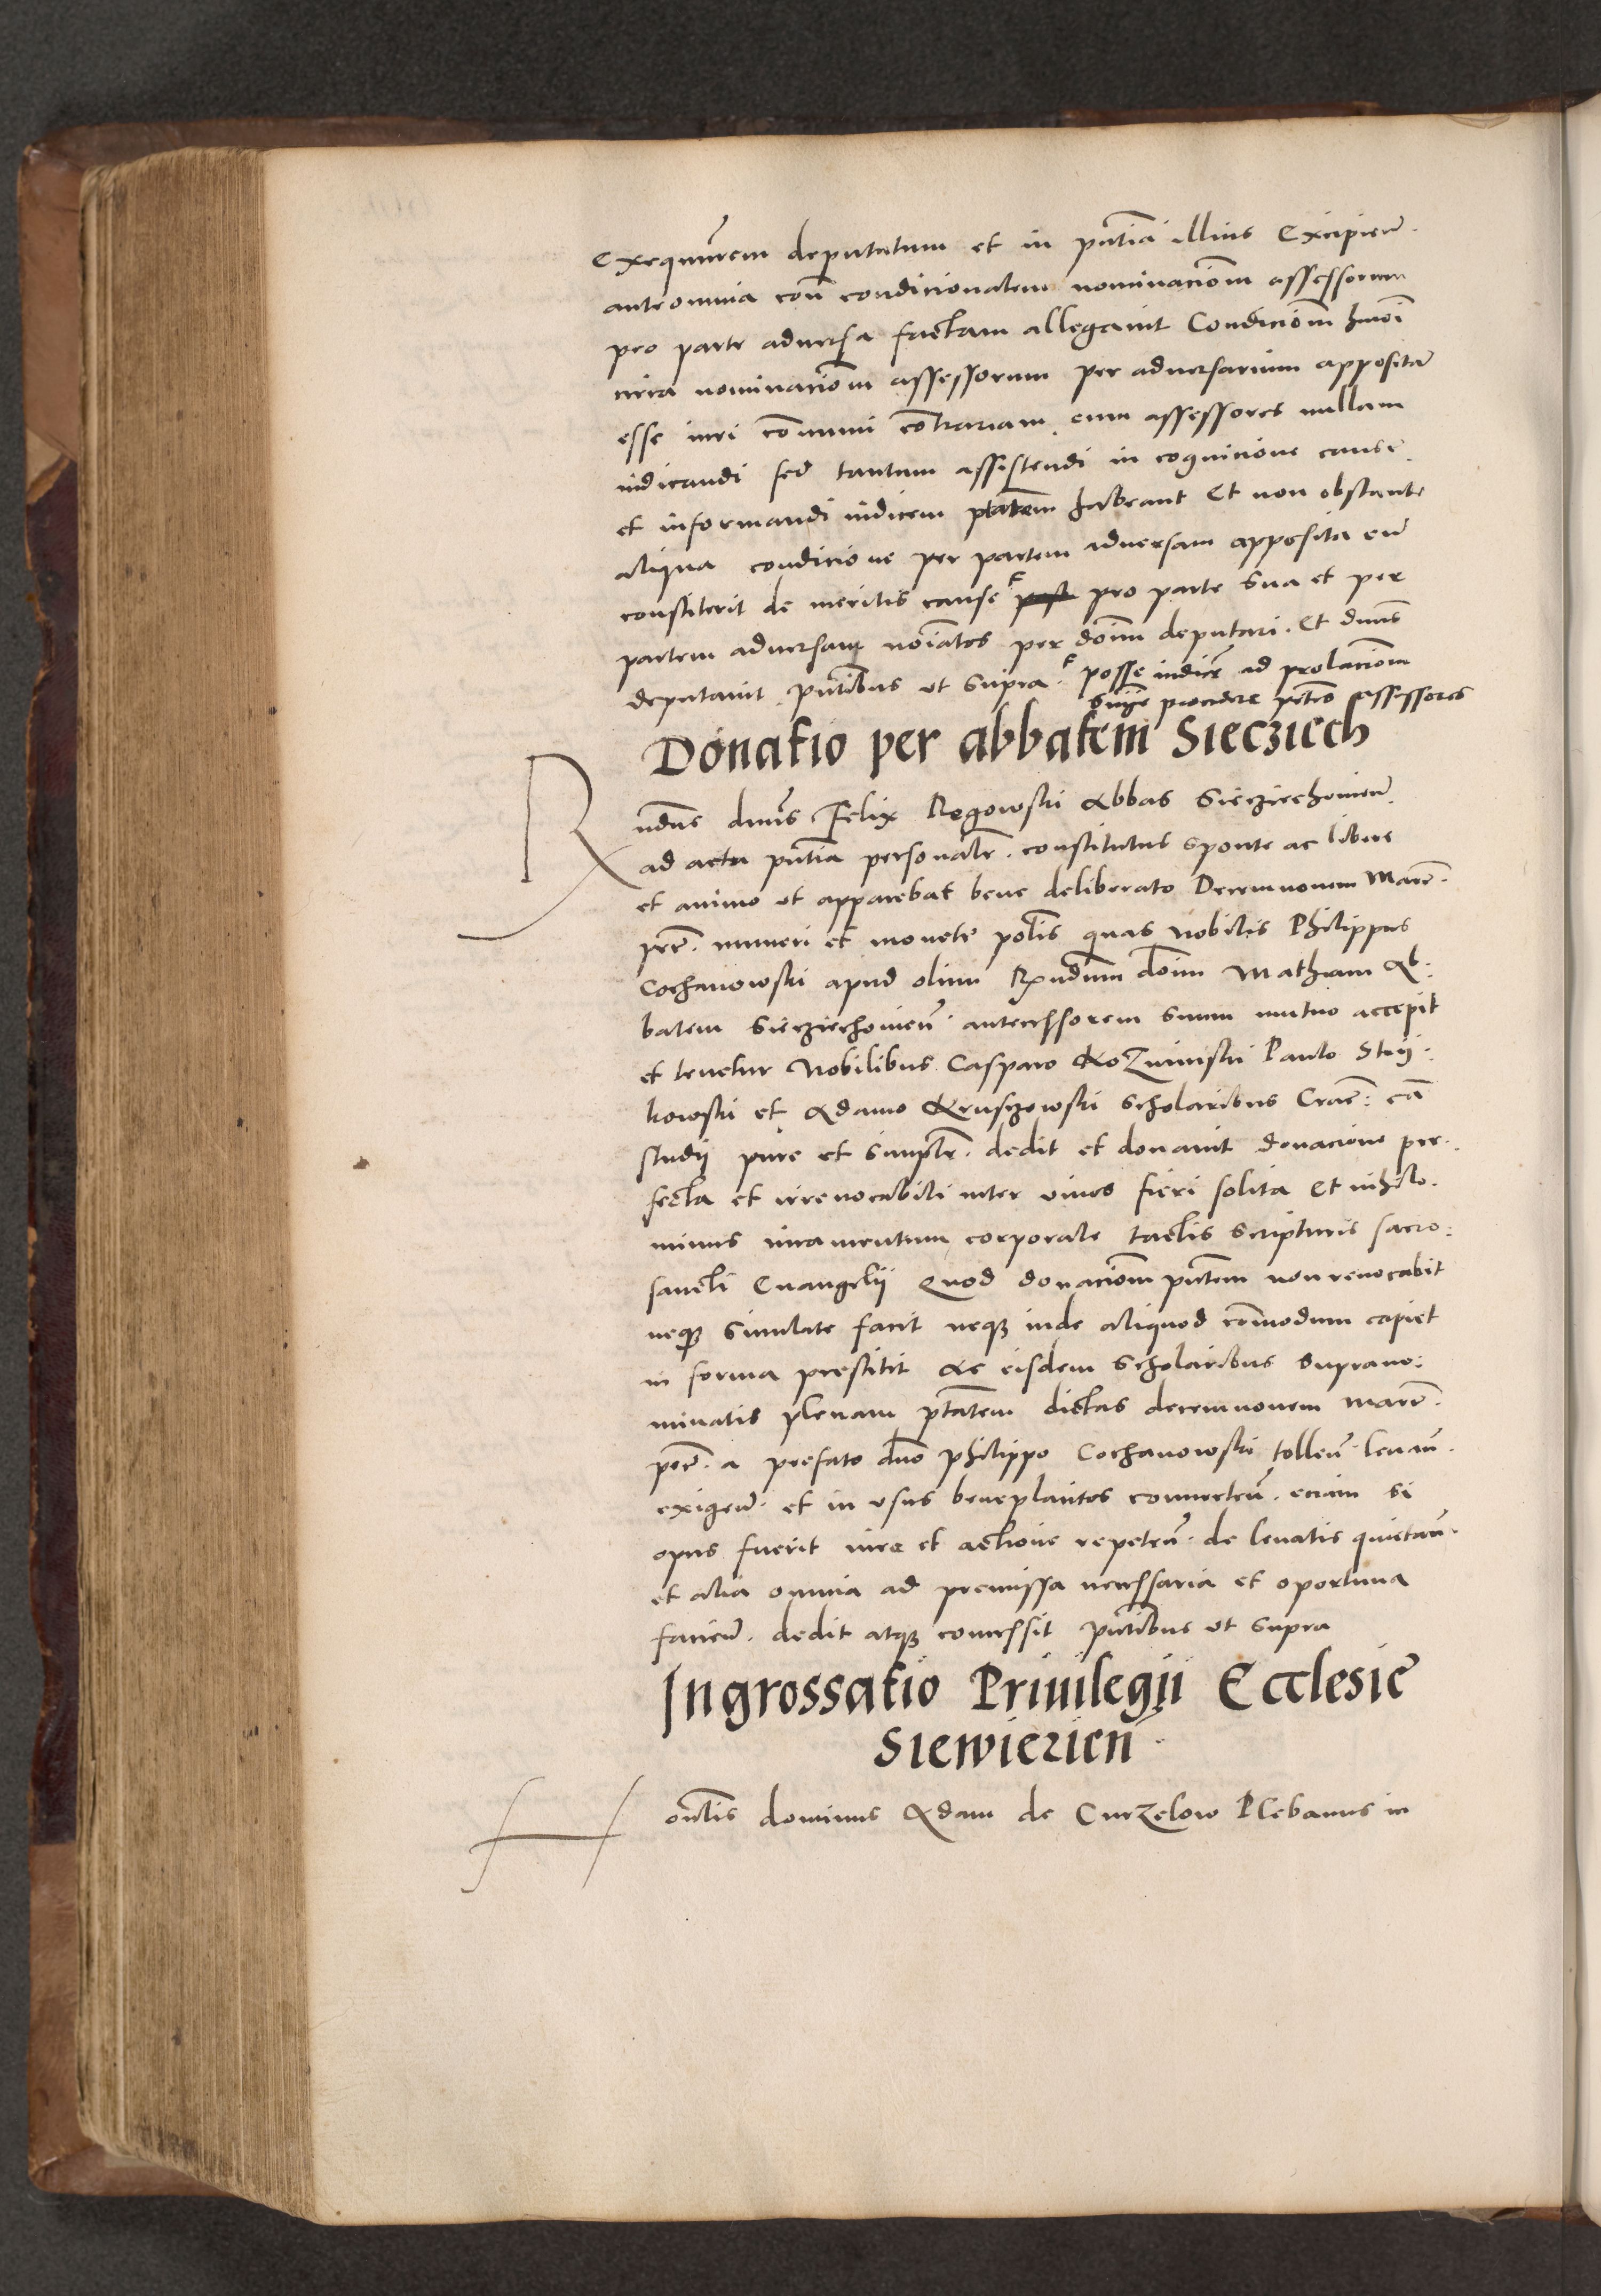 Exequutorem deputatum et in pñtia illius Excipieñ.
anteomnia coñ condicionalem nominacioñm assessorum
pro parte adversa factam allegavit Condicioñm hmoi
circa nominacioñm assessorum per adversarium apposita
esse iuri cõmuni cõtrariam cum assessores nullam
iudicandi sed tantum assistendi in cognicione cause
et informandi iudicem ptatem habeant Et non obstante
aliqua condicione per partem adversam apposita cũ
constiterit de meritis cause pro parte sua et per
partem adversam noĩatos per dõim deputari. Et dnus
deputavit. pñtibus ut supra. posse iudicẽ ad prolacioñm
snĩe procedere petẽs assessores
Donatio per abbatem Siecziech
Rndus dnus Felix Rogowski Abbas Siecziechovieñ.
ad acta pñtia personalr. constitutus sponte ac libere
et animo ut apparebat bene deliberato Decemnovem Marc.
pec. numeri et monete polis quas Nobilis Philippus
Cochanowski apud olim Rvndum dõim Mathiam Ab:
batem Siecziechovieñ. antecessorem suum mutuo accepit
et tenetur Nobilibus Casparo Kozminski Paulo Strij:
kowski et Adamo Kruschowski Scholaribus Crac:
studij pure et simplr. dedit et donavit donacione per:
fecta et irrevocabili inter vivos fieri solita Et nihilo:
minus iuramentum corporale tactis scripturis sacro:
sancti Evangelij Quod donacioñm pñtem non revocabit
neqз simulate facit neqз inde aliquod cõmodum capiet
in forma prestitit Ac eisdem Scholaribus suprano:
minatis plenam ptatem dictas decemnovem marc.
pec. a prefato dno Philippo Cochanowski tolleñ. levañ.
exigeñ. et in usus beneplacitos converteñ. eciam si
opus fuerit iure et actione repeteñ. de levatis quietañ.
et alia omnia ad premissa necessaria et oportuna
facieñ. dedit atqз concessit pñtibus ut supra
Ingrossatio Privilegii Ecclesie
Siewierien
Honlis dominus Adam de Curzelow Plebanus in